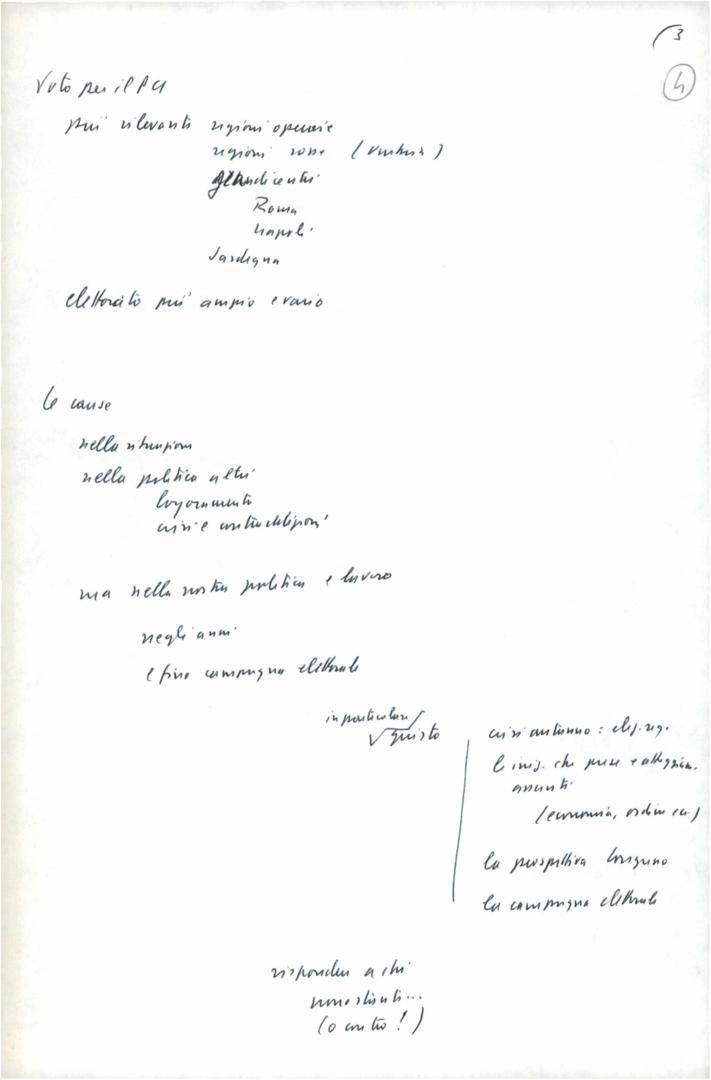 3
4
Voto per il PCI
più rilevanti regioni operaie
regioni rosse ( )
grandi centri
Roma
Napoli
Sardegna
elettorato più ampio e vario
le cause
nella situazione
nella politica altri
logoramento
crisi e contraddizioni
ma nella nostra politica e lavoro
negli anni
e fino campagna elettorale
in particolare
giusto
crisi autunno: elez. reg.
le iniz. che prese e atteggiam.
assunti
(economia, ordine ecc.)
la prospettiva bisogno
la campagna elettorale
rispondere a chi
nonostante...
(o contro!)